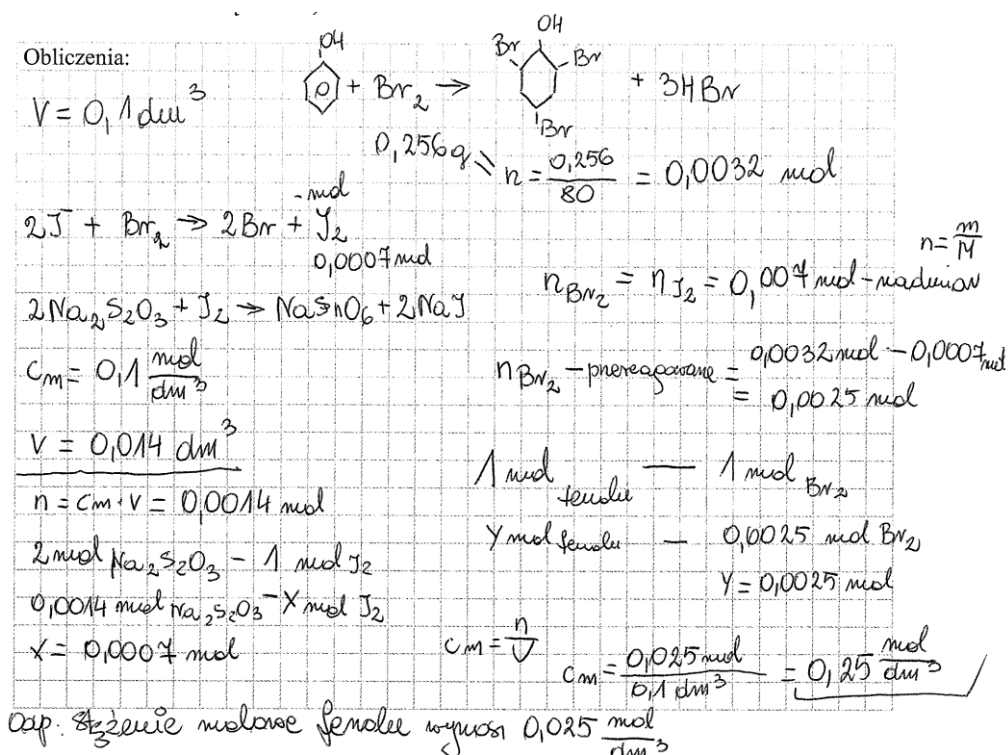 Obliczenia:
V = 0,1 dm³
OH
+ Br₂ → OH Br Br Br + 3HBr
0,256g
n = 0,256/80 = 0,0032 mol
2J⁻ + Br₂ → 2Br + J₂
-mol
0,0007 mol
n = m/M
n Br₂ = n J₂ = 0,007 mol - nadmiar
2Na₂S₂O₃ + J₂ → NaSnO₆ + 2NaJ
cm = 0,1 mol/dm³
n Br₂ - przereagowane = 0,0032 mol - 0,0007 mol
= 0,0025 mol
V = 0,014 dm³
n = cm·V = 0,0014 mol
1 mol fenolu — 1 mol Br₂
Y mol fenolu — 0,0025 mol Br₂
Y = 0,0025 mol
2 mol Na₂S₂O₃ - 1 mol J₂
0,0014 mol Na₂S₂O₃ - X mol J₂
X = 0,0007 mol
cm = n/V
cm = 0,025 mol/0,1 dm³ = 0,25 mol/dm³
Odp. Stężenie molowe fenolu wynosi 0,025 mol/dm³